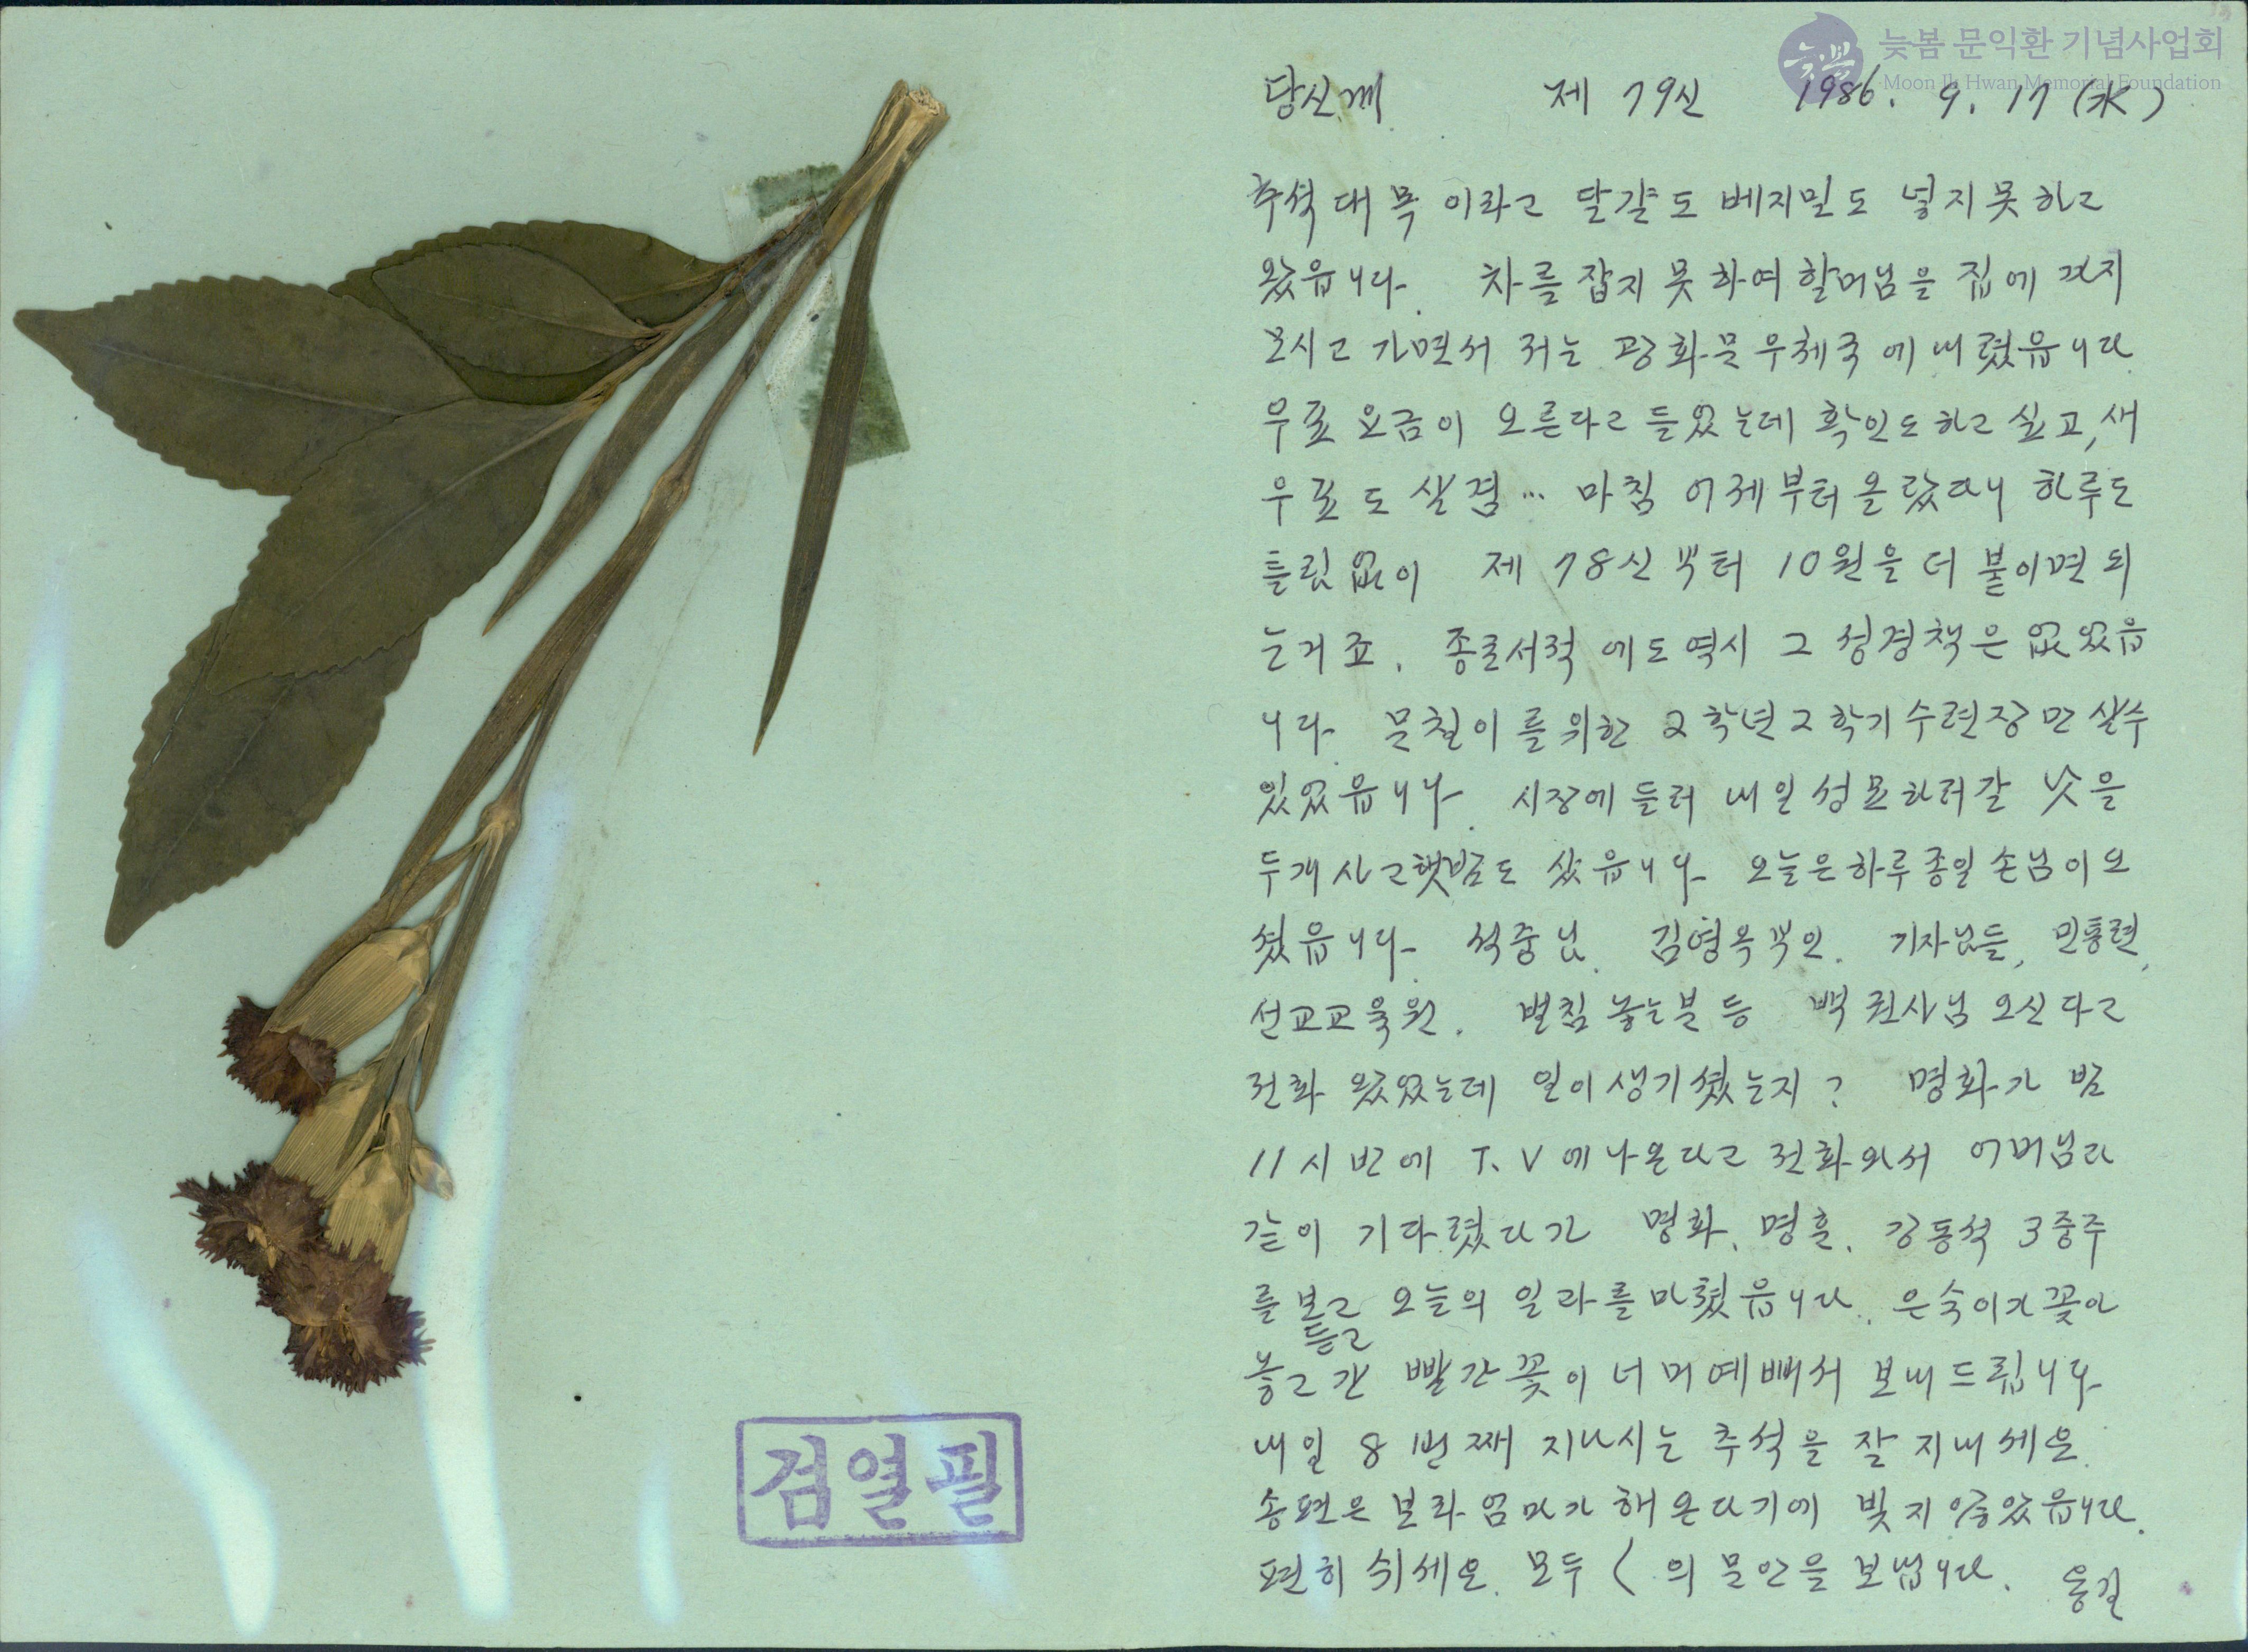 늦봄 문익환 기념사업회
Moon Ik Hwan Memorial Foundation
당신께 제 79신 1986. 9. 17 (水)
추석 대목이라고 달걀도 베지밀도 넣지 못하고
왔읍니다. 차를 잡지 못하여 할머님을 집에까지
모시고 가면서 저는 광화문 우체국에 내렸읍니다.
우표 요금이 오른다고 들었는데 확인도 하고 싶고, 새
우표도 살겸… 마침 어제부터 올랐다니 하루도
틀림없이 제 78신부터 10원을 더 붙이면 되
는거죠. 종로서적에도 역시 그 성경책은 없었읍
니다. 문칠이를 위한 2학년 2학기 수련장만 살수
있었읍니다. 시장에 들러 내일 성묘하러갈 낫을
두개 사고 햇밤도 샀읍니다. 오늘은 하루종일 손님이 오
셨읍니다. 석중님. 김영옥부인. 기자님들, 민통련,
선교교육원. 벌침 놓는분 등 백 권사님 오신다고
전화 왔었는데 일이 생기셨는지? 명화가 밤
11시 반에 T.V에 나온다고 전화와서 어머님과
같이 기다렸다가 명화, 명훈, 강동석 3중주
를 보고 오늘의 일과를 마쳤읍니다. 은숙이가 꽃아
듣고
놓고 간 빨간 꽃이 너머 예뻐서 보내드립니다.
내일 8번째 지나시는 추석을 잘 지내세요.
송편은 보라 엄마가 해온다기에 빚지 않았읍니다.
편히 쉬세요. 모두 의 문안을 보냅니다. 용길
검열필